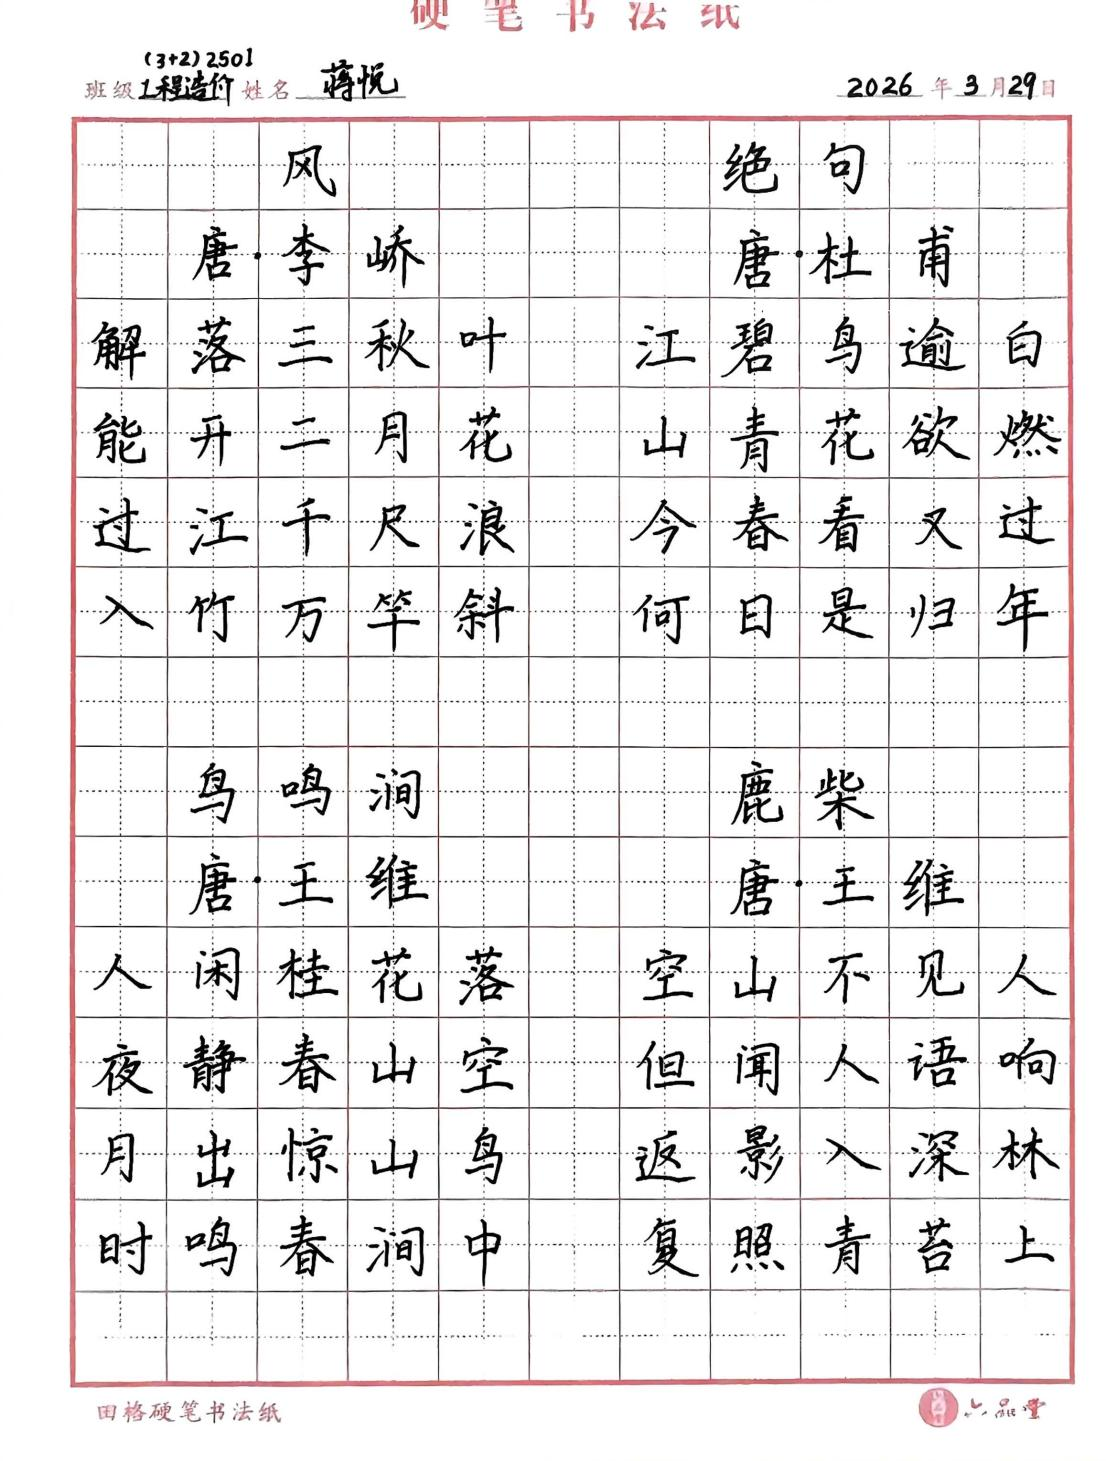 硬笔书法纸
(3+2)2501
班级 工程造价 姓名 蒋悦 2026年3月29日
风
唐·李峤
解落三秋叶
能开二月花
过江千尺浪
入竹万竿斜
绝句
唐·杜甫
江碧鸟逾白
山青花欲燃
今春看又过
何日是归年
鸟鸣涧
唐·王维
人闲桂花落
夜静春山空
月出惊山鸟
时鸣春涧中
鹿柴
唐·王维
空山不见人
但闻人语响
返影入深林
复照青苔上
田格硬笔书法纸
六品堂